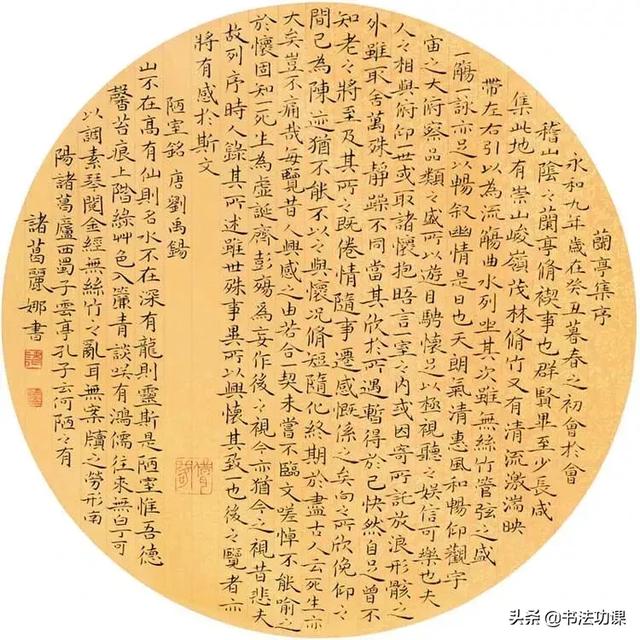 蘭亭集序
永和九年歲在癸丑暮春之初會於會
稽山陰之蘭亭脩禊事也群賢畢至少長咸
集此地有崇山峻嶺茂林脩竹又有清流激湍映
帶左右引以為流觴曲水列坐其次雖無絲竹管弦之盛
一觴一詠亦足以暢叙幽情是日也天朗氣清惠風和暢仰觀宇
宙之大俯察品類之盛所以遊目騁懷足以極視聽之娛信可樂也夫
人之相與俯仰一世或取諸懷抱晤言室之內或因寄所託放浪形骸之
外雖取舍萬殊靜躁不同當其欣於所遇暫得於己快然自足曾不
知老之將至及其所之既倦情隨事遷感慨係之矣向之所欣俛仰之
間已為陳迹猶不能不以之興懷況脩短隨化終期於盡古人云死生亦
大矣豈不痛哉每覽昔人興感之由若合契未嘗不臨文嗟悼不能喻之
於懷固知一死生為虛誕齊彭殤為妄作後之視今亦猶今之視昔悲夫
故列序時人錄其所述雖世殊事異所以興懷其致一也後之覽者亦
將有感於斯文
陋室銘 唐 劉禹錫
山不在高有仙則名水不在深有龍則靈斯是陋室惟吾德
馨苔痕上階綠艸色入簾青談咲有鴻儒往來無白丁可
以調素琴閱金經無絲竹之亂耳無案牘之勞形南
陽諸葛廬西蜀子雲亭孔子云何陋之有
諸葛麗娜書
头条 @书法功课